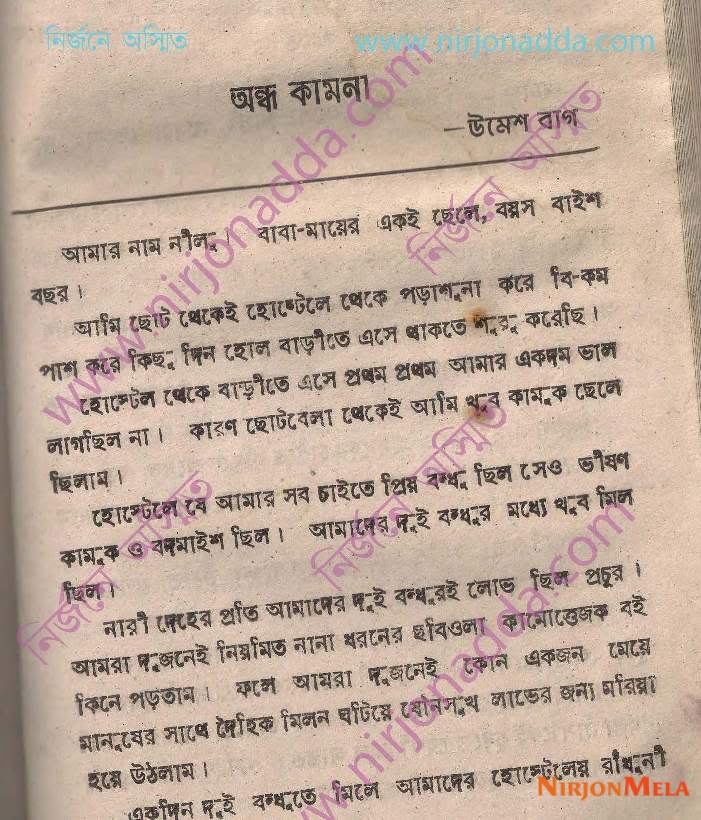 নির্জনে অস্মিত www.nirjonadda.com
অন্ধ কামনা
—উমেশ বাগ
আমার নাম নীলু। বাবা-মায়ের একই ছেলে, বয়স বাইশ
বছর।
আমি ছোট থেকেই হোস্টেলে থেকে পড়াশুনা করে বি-কম
পাশ করে কিছু দিন হোল বাড়ীতে এসে থাকতে শুরু করেছি।
হোস্টেল থেকে বাড়ীতে এসে প্রথম প্রথম আমার একদম ভাল
লাগছিল না। কারণ ছোটবেলা থেকেই আমি খুব কামুক ছেলে
ছিলাম।
হোস্টেলে যে আমার সব চাইতে প্রিয় বন্ধু ছিল সেও ভীষণ
কামুক ও বদমাইশ ছিল। আমাদের দুই বন্ধুর মধ্যে খুব মিল
ছিল।
নারী দেহের প্রতি আমাদের দুই বন্ধুরই লোভ ছিল প্রচুর।
আমরা দুজনেই নিয়মিত নানা ধরনের ছবিওলা কামোত্তেজক বই
কিনে পড়তাম। ফলে আমরা দুজনেই কোন একজন মেয়ে
মানুষের সাথে দৈহিক মিলন ঘটিয়ে যৌনসুখ লাভের জন্য মরিয়া
হয়ে উঠলাম।
একদিন দুই বন্ধুতে মিলে আমাদের হোস্টেলের রাঁধুনী
www.nirjonadda.com
নির্জনে অস্মিত
নির্জনে অস্মিত
নির্জনে অস্মিত
www.nirjonadda.com
NIRJONMELA